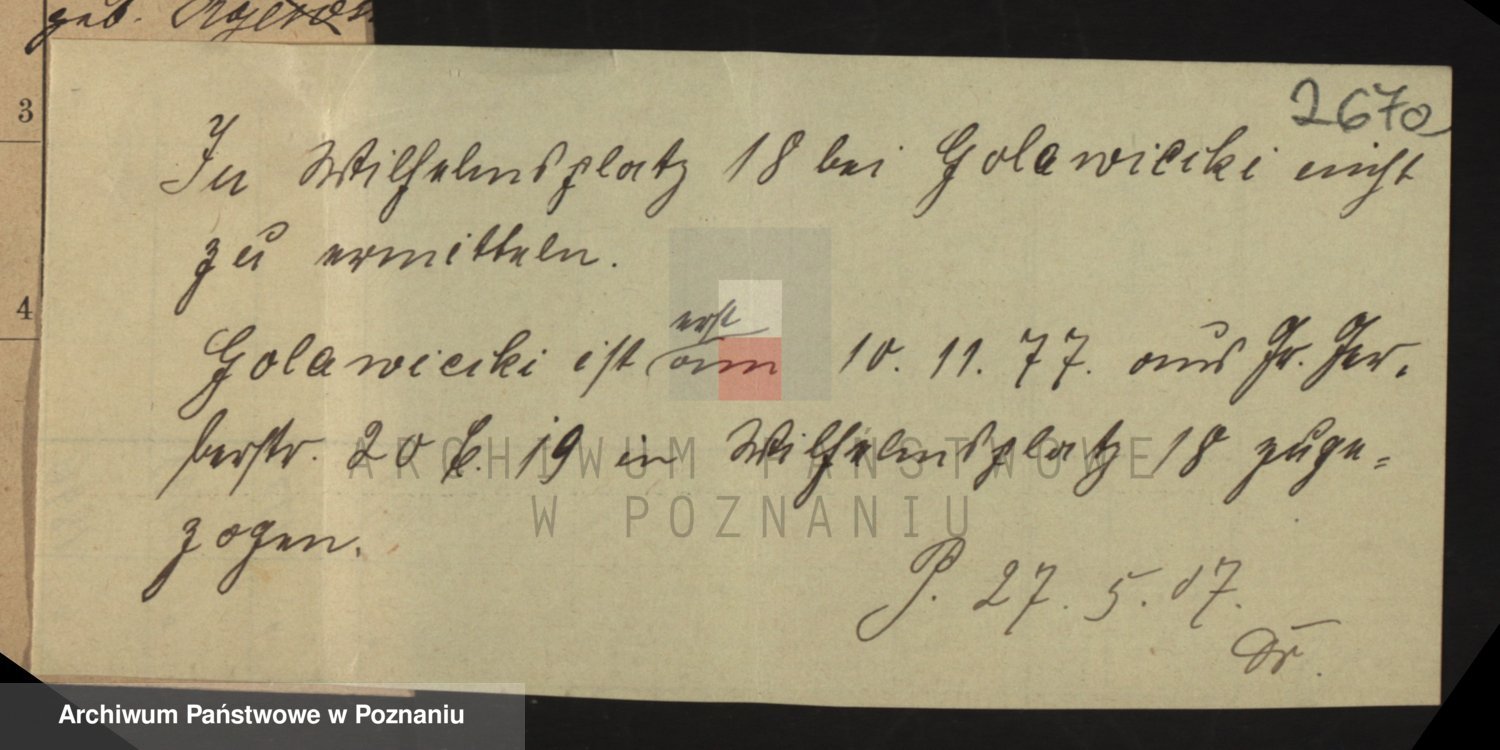 geb.
3
4
2670
In Wilhelmsplatz 18 bei Golawiecki nicht
zu ermitteln.
erst
Golawiecki ist am 10. 11. 77. aus Gr. Ger-
berstr. 20 19 in Wilhelmsplatz 18 zuge=
zogen.
P. 27. 5. 07.
ARCHIWUM PAŃSTWOWE
W POZNANIU
Archiwum Państwowe w Poznaniu